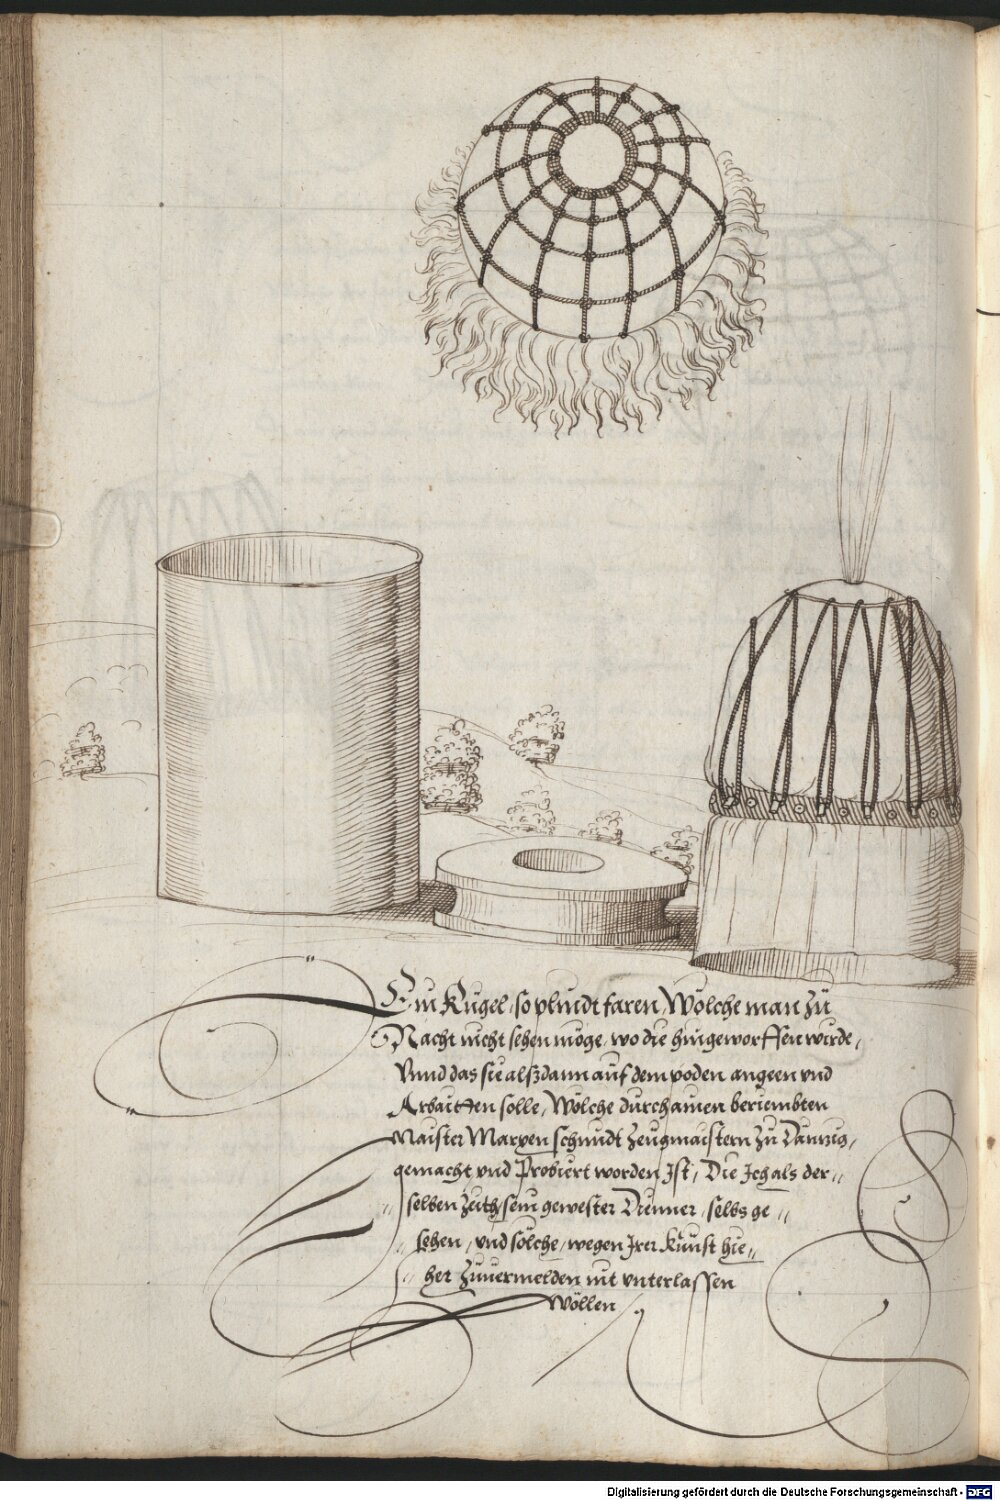 Ein Kugel, so plindt faren, Wölche man zů
Nacht nicht sehen möge, wo die hingeworffen würde,
Vnnd das sie alßdann auf dem poden angeen vnd
Arbaitten solle, Wölche durch ainen beriembten
Maister Marxen schmidt Zeugmaistern zu Dannzig,
gemacht vnd Probiert worden Ist, Die Ich als der„
selben Zeith, sein gewester Dienner, selbs ge„
sehen, vnd sölche, wegen Irer Kunst hie„
her Zuuermelden nit vnterlassen
wöllen
Digitalisierung gefördert durch die Deutsche Forschungsgemeinschaft - DFG